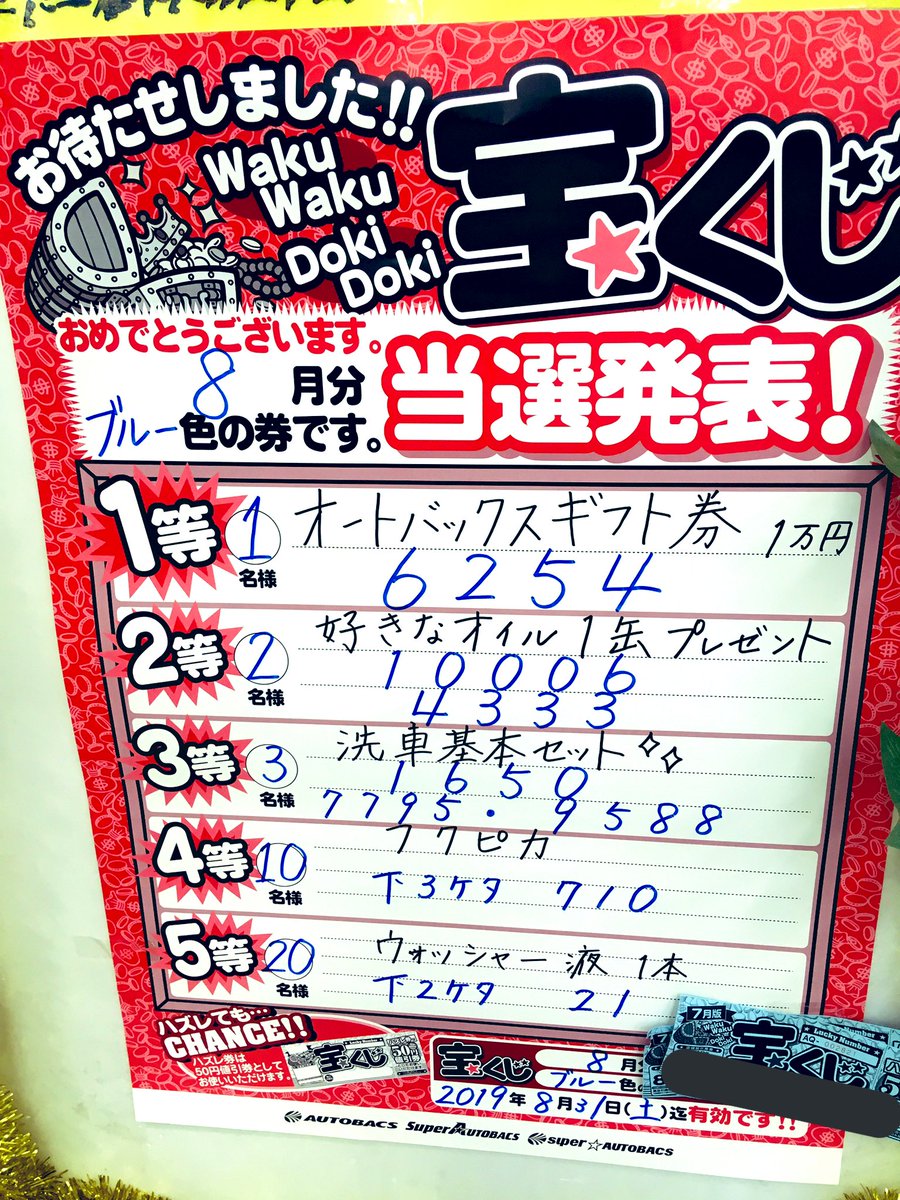 お待たせしました!!
Waku
Waku
Doki
Doki
宝くじ
おめでとうございます。
8月分
ブルー色の券です。
当選発表!
1等 1名様 オートバックスギフト券 1万円
6254
2等 2名様 好きなオイル1缶プレゼント
10006
4333
3等 3名様 洗車基本セット
1650
7795・9588
4等 10名様 フクピカ
下3ケタ 710
5等 20名様 ウォッシャー液 1本
下2ケタ 21
ハズレても…
CHANCE!!
ハズレ券は
50円値引券として
お使いいただけます。
宝くじ
50円
宝くじ
8月
ブルー色の
2019年8月31日(土)迄有効です!!
7月版
Waku
Waku
宝くじ
Lucky Number
AUTOBACS
Super AUTOBACS
super☆AUTOBACS